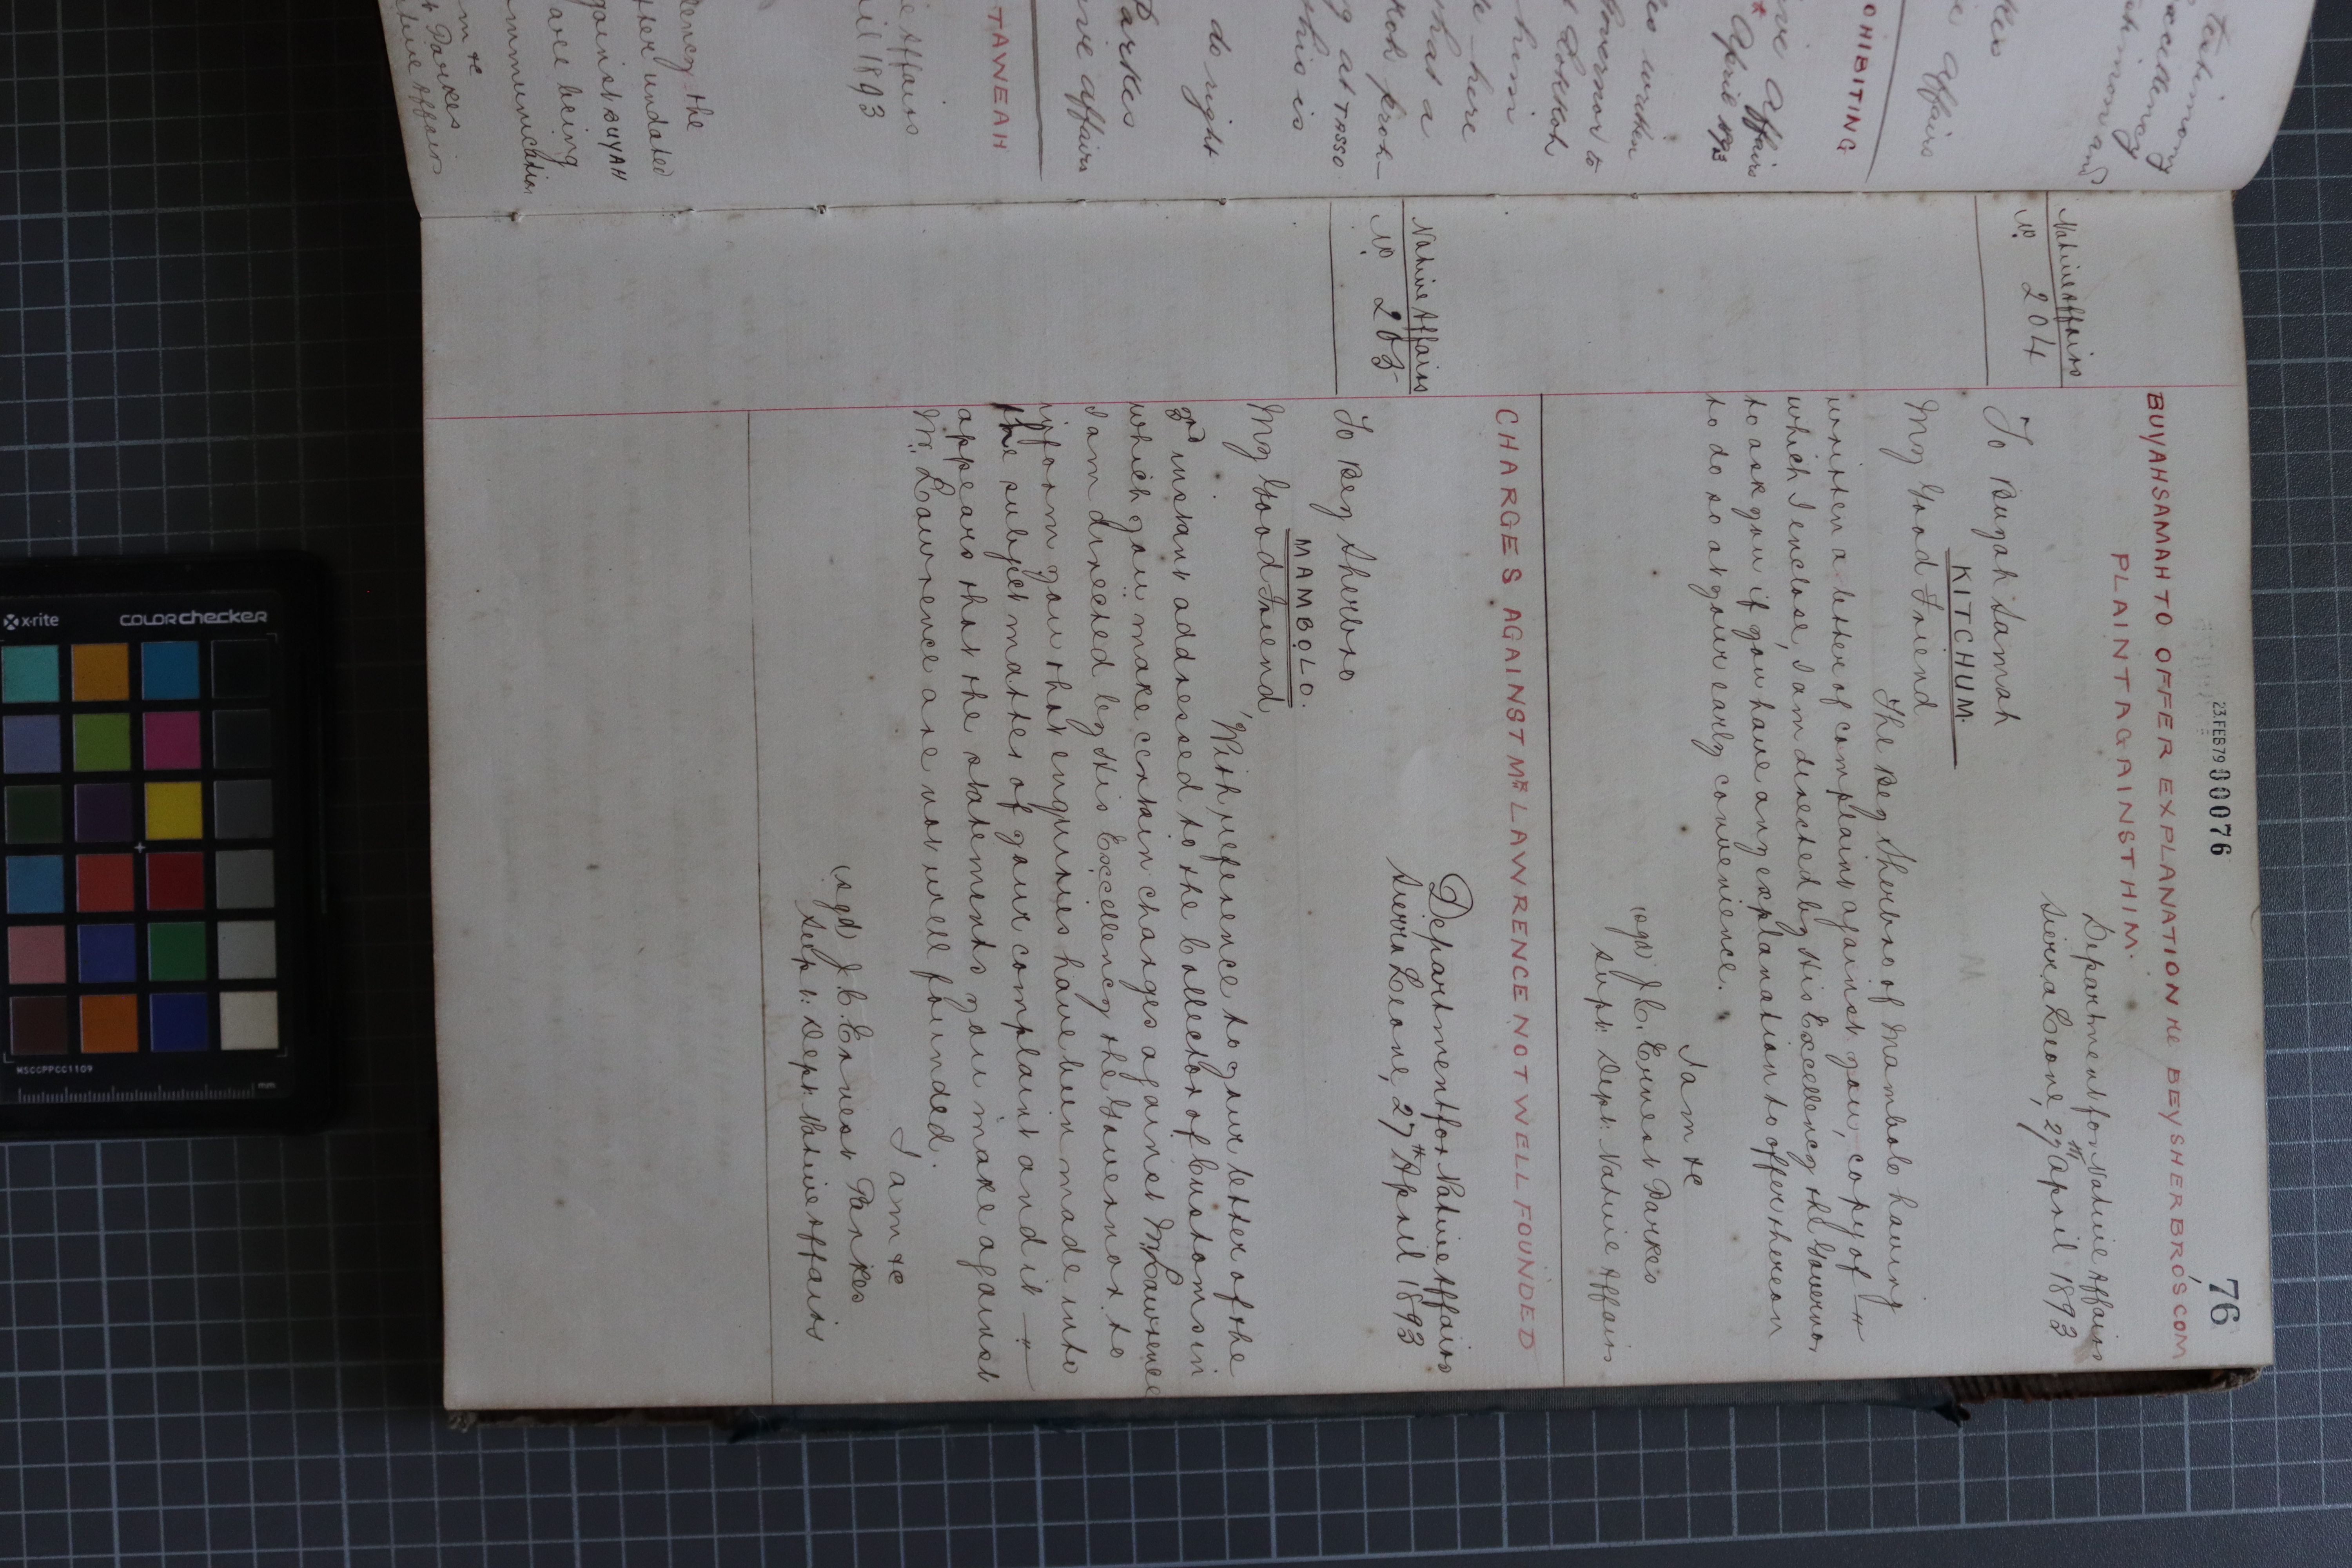 23.FEB79 00076
76
BUYAHSAMAH TO OFFER EXPLANATION RE BEY SHERBRO'S COM
PLAINT AGAINST HIM.
Native Affairs
No. 204
Department for Native Affairs
Sierra Leone, 27th April 1893
To Buyah Samah
KITCHUM.
My Good Friend
The Bey Sherbro of Mambolo having
written a letter of complaint against you, copy of
which I enclose, I am directed by His Excellency the Governor
to ask you if you have any explanation to offer thereon
to do so at your early convenience.
I am &c
(sgd) J.C. Ernest Parkes
Supt. Dept. Native Affairs
CHARGES AGAINST MR LAWRENCE NOT WELL FOUNDED
Native Affairs
No. 205
Department for Native Affairs
Sierra Leone, 27th April 1893
To Bey Sherbro
MAMBOLO.
My Good Friend,
With reference to your letter of the
instant addressed to the Collector of Customs in
which you make certain charges against Mr Lawrence
I am directed by His Excellency the Governor to
inform you that enquiries have been made into
the subject matter of your complaint and it
appears that the statements you make against
Mr. Lawrence are not well founded.
I am &c
(sgd) J.C. Ernest Parkes
Supt. Dept. Native Affairs
testimony
Excellency
Affairs
OHIBITING
ive Affairs
April 1893
Governor to
him
here
that a
at TASSO
this is
do right
Parkes
ive Affairs
TAWEAH
e Affairs
il 1893
ency the
her undated
gainst BUYAH
are being
ommunication
m &c
t Parkes
ative Affairs
x-rite
colorchecker
MSCCPPCC1109
mm